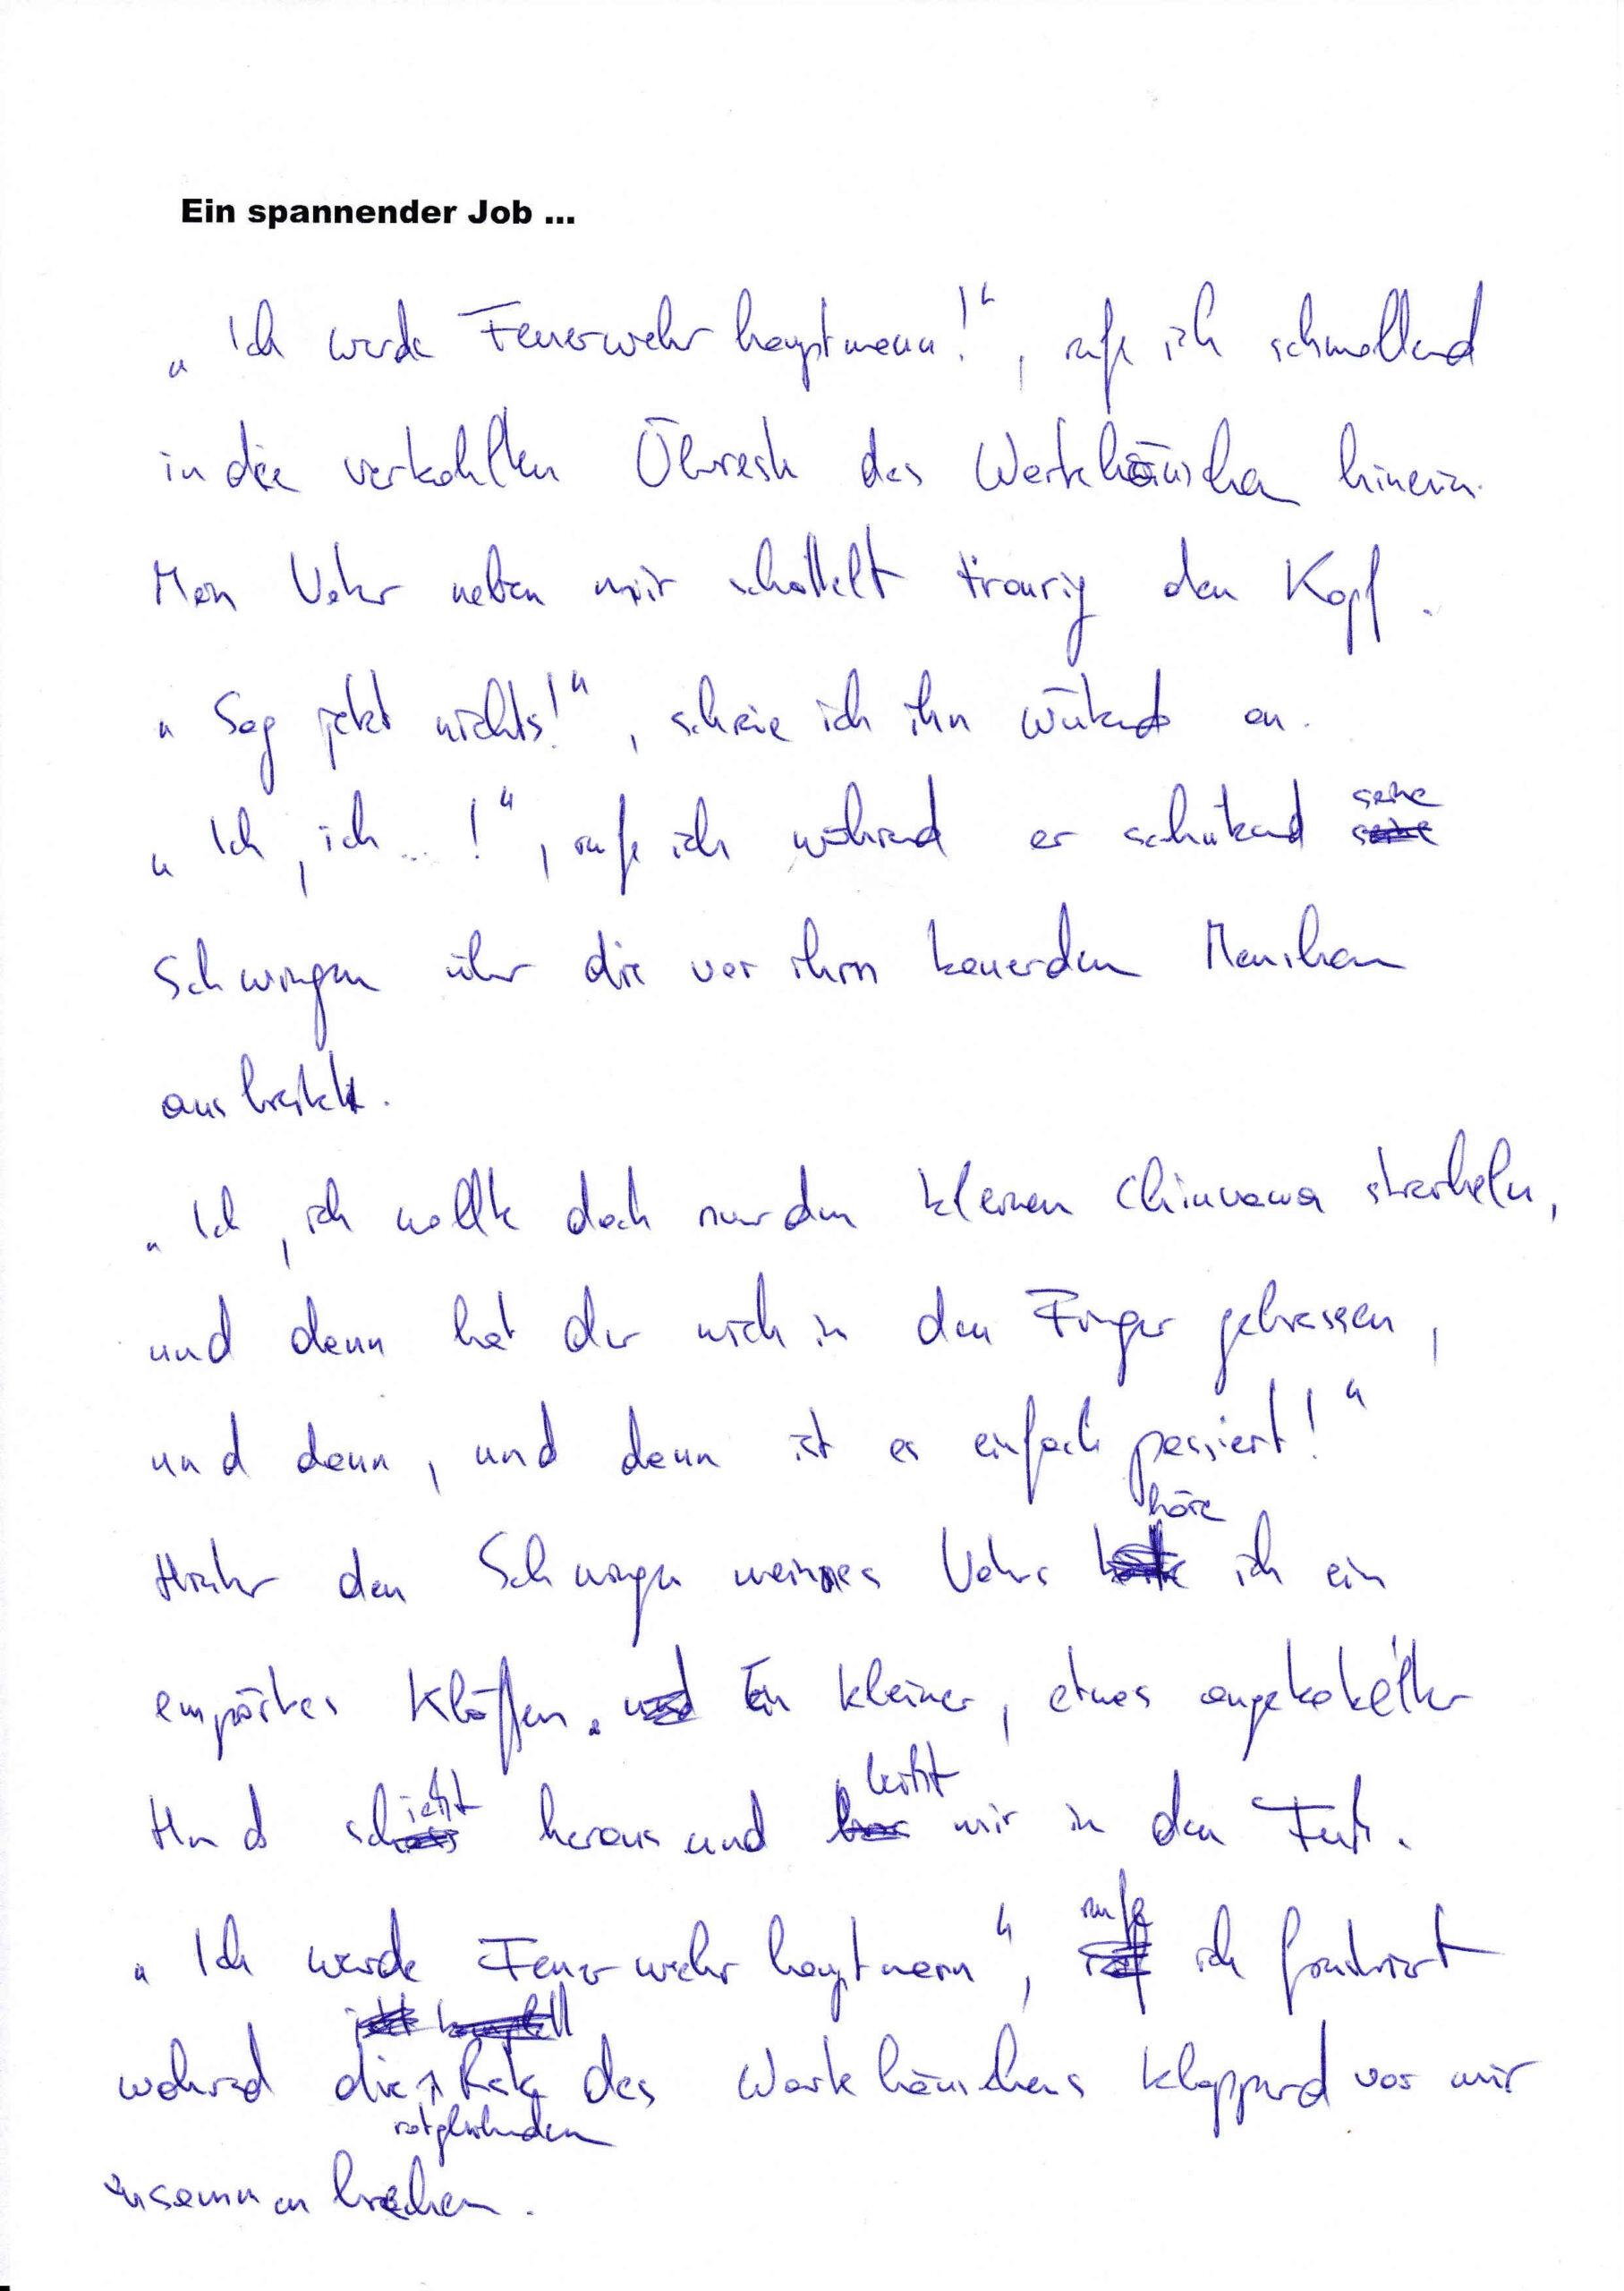 Ein spannender Job ...
„Ich werde Feuerwehrhauptmann!“, rufe ich schmollend
in die verkohlten Überreste des Wartehäuschen hinein.
Mein Vater neben mir schüttelt traurig den Kopf.
„Sag jetzt nichts!“, schreie ich ihn wütend an.
„Ich, ich ... !“, rufe ich während er schützend seine
Schwingen über die vor ihm kauernden Menschen
ausbreitet.
„Ich, ich wollte doch nur den kleinen Chiuuaua streicheln,
und dann hat der mich in den Finger gebissen,
und dann, und dann ist es einfach passiert!“
Hinter den Schwingen meines Vaters höre ich ein
empörtes Kläffen. Ein kleiner, etwas angekokelter
Hund schießt heraus und beißt mir in den Fuß.
„Ich werde Feuerwehrhauptmann“, rufe ich frustriert
während die rotglühenden Reste des Wartehäuschens klappernd vor mir
zusammenbrechen.